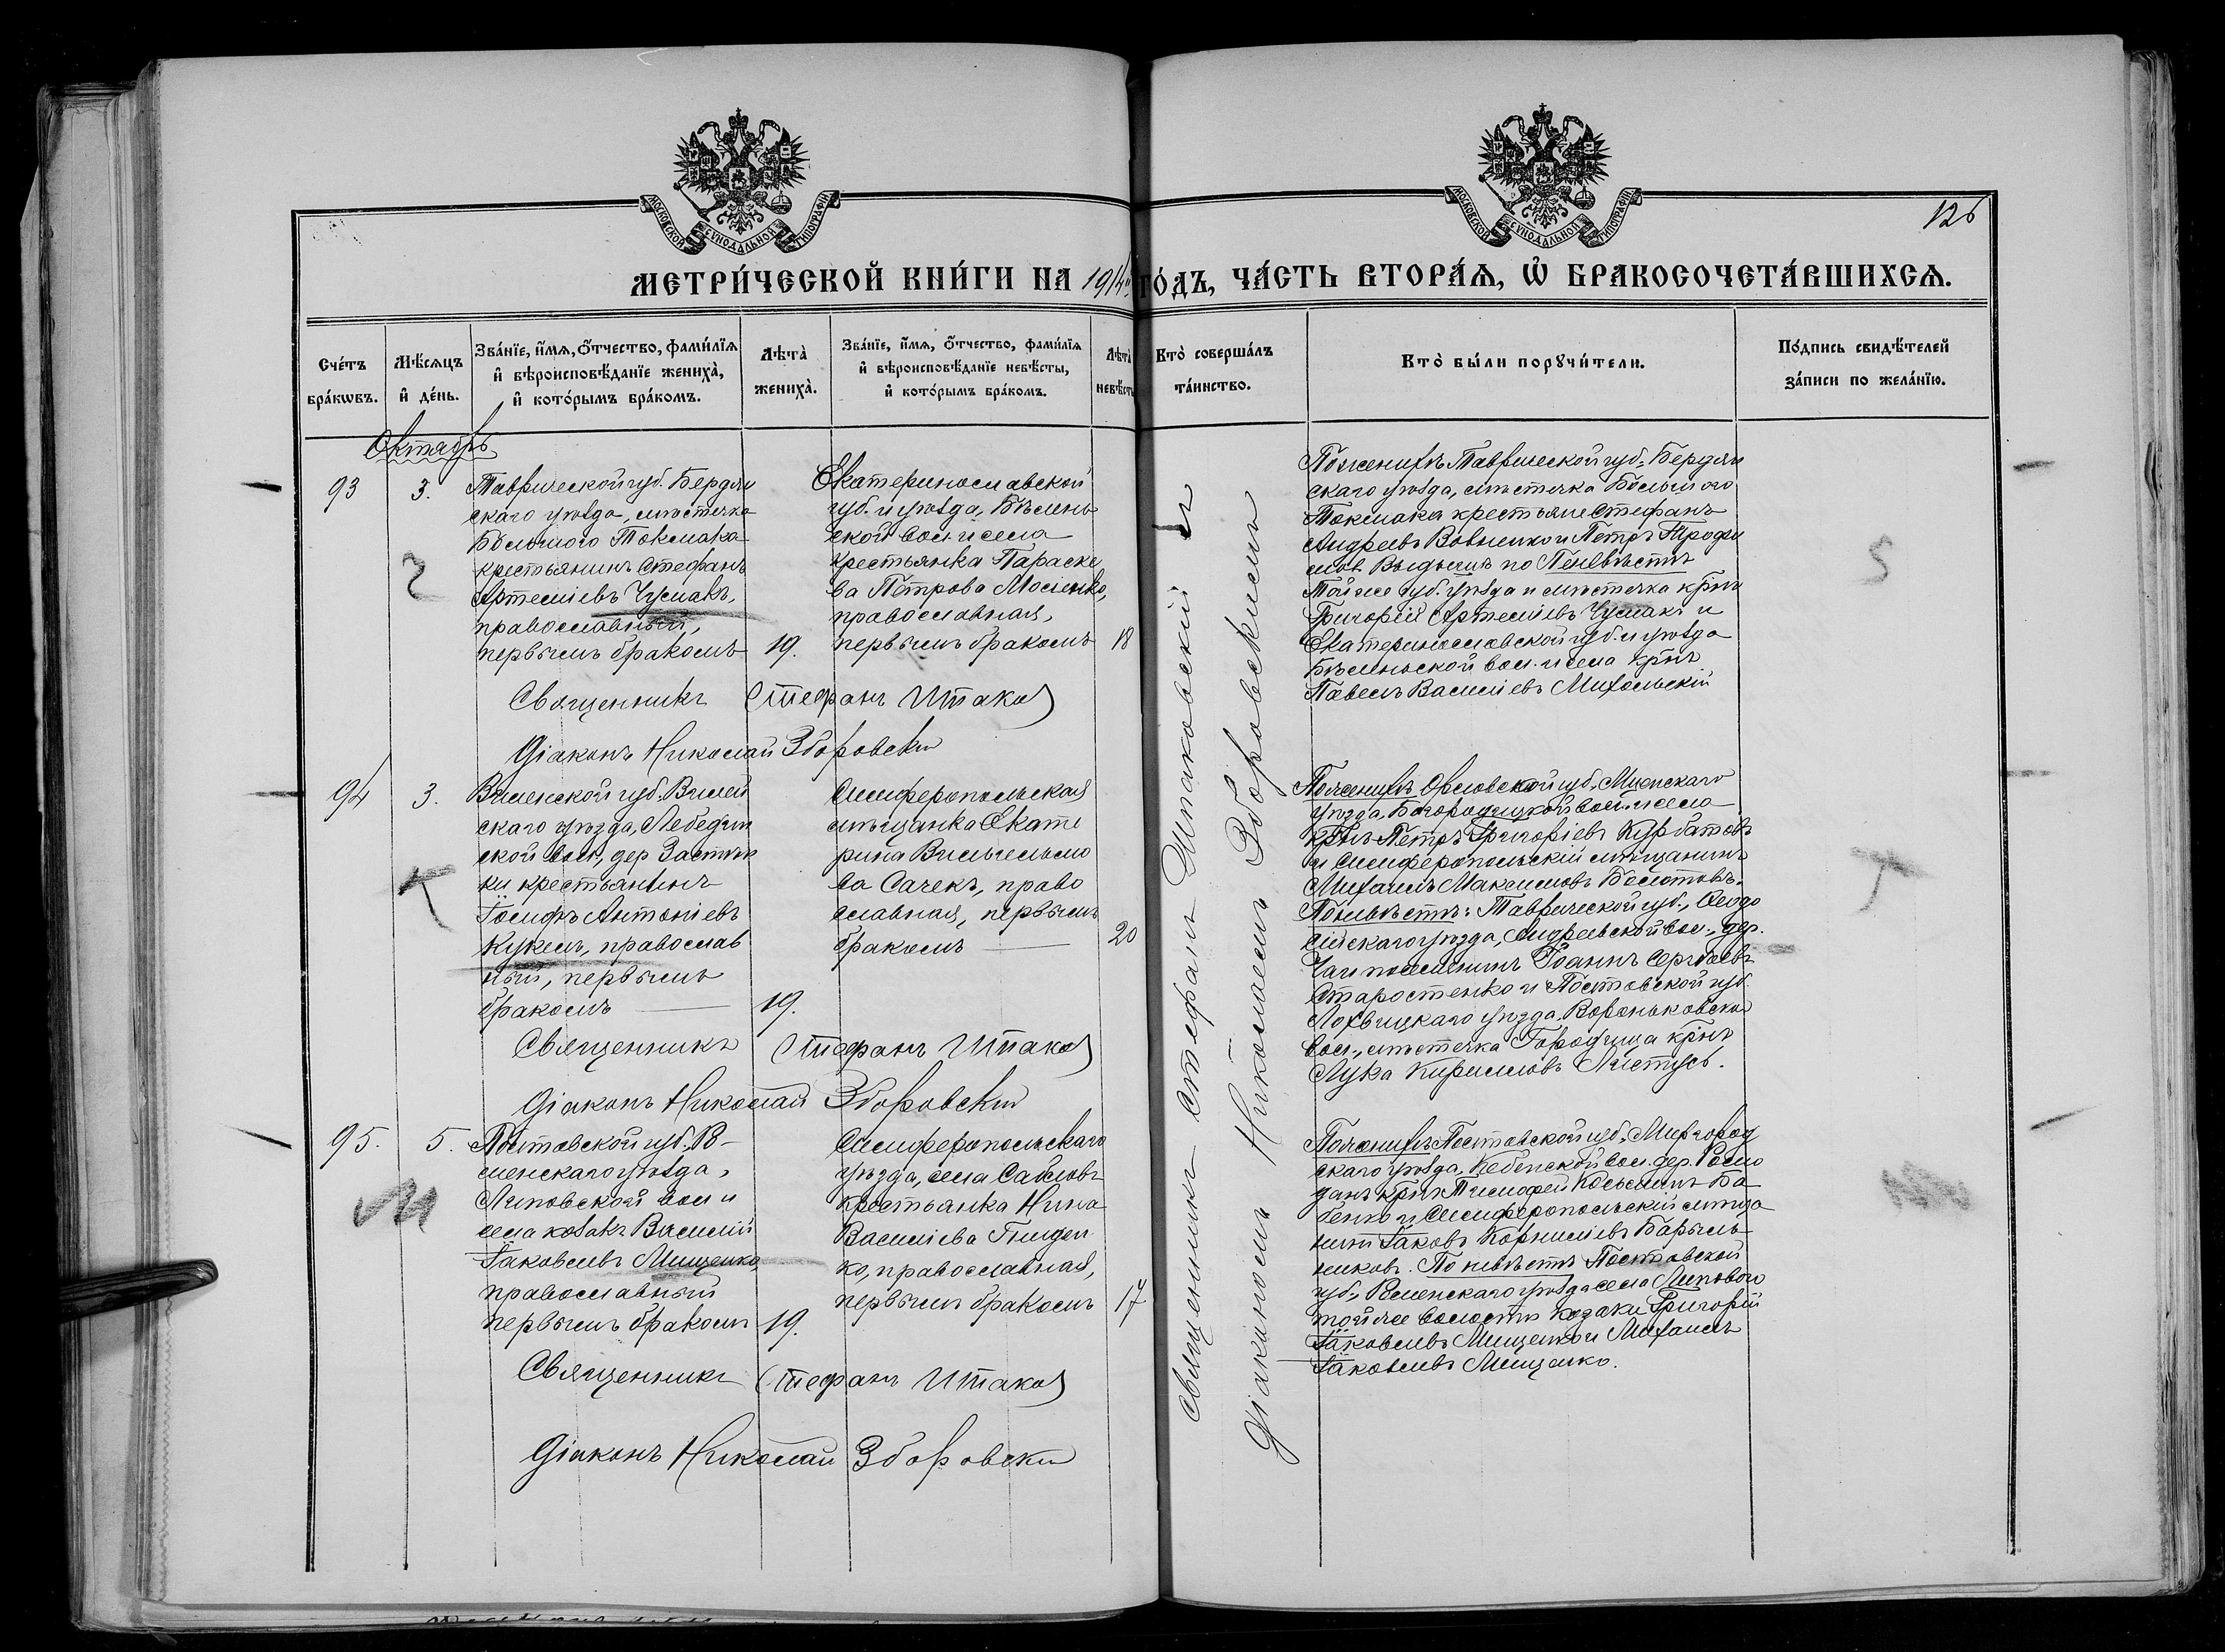 МОСКОВСКОЙ СѴНОДАЛЬНОЙ ТИПОГРАФІИ
МОСКОВСКОЙ СѴНОДАЛЬНОЙ ТИПОГРАФІИ
126
МЕТРИ́ЧЕСКОЙ КНИ́ГИ НА 1914 ГО́ДЪ, ЧА́СТЬ ВТОРА́Ѧ, Ѽ БРАКОСОЧЕТА́ВШИХСѦ.
Сче́тъ бра́кѡвъ.
Мѣ́сѧцъ и҆ де́нь.
Зва́нїе, и҆́мѧ, ѻ҆́тчество, фами́лїѧ и҆ вѣроисповѣ́данїе жениха̀, и҆ кото́рымъ бра́комъ.
Лѣ́та жениха̀.
Зва́нїе, и҆́мѧ, ѻ҆́тчество, фами́лїѧ и҆ вѣроисповѣ́данїе невѣ́сты, и҆ кото́рымъ бра́комъ.
Лѣ́та невѣ́сты
Кто̀ соверша́лъ та́инство.
Кто̀ бы́ли порꙋчи́тели.
По́дпись свидѣ́телей за́писи по жела́нїю.
Октябрь
93
3.
Таврической губ. Бердян
скаго уѣзда, мѣстечка
Большого Токмака
крестьянинъ Стефанъ
Артеміевъ Чумакъ,
православный,
первымъ бракомъ
19.
Екатеринославской
губ. и уѣзда, Бѣлень
ской вол. и села
крестьянка Параске
ва Петрова Мосіенко,
православная,
первымъ бракомъ
18
Священникъ Стефанъ Шпаковскій и
Діакономъ Николаемъ Зборовскимъ
По женихѣ Таврической губ. Бердян
скаго уѣзда, мѣстечка Большого
Токмака крестьяне Стефанъ
Андреевъ Вовненко и Петръ Трофи
мовъ по Невѣстѣ
Той же губ. уѣзда и мѣстечка кр–нъ
Григорій Артеміевъ Чумакъ и
Екатеринославской губ. и уѣзда
Бѣленьской вол. и села кр–нъ
Павелъ Василіевъ Михольскій
Ч
Священникъ Стефанъ Шпаков
Діаконъ Николай Зборовскій
94
3.
Виленской губ. Вилей
скаго уѣзда, Лебедин
ской вол, дер Застѣн
ки крестьянинъ
Іосифъ Антоніевъ
Кукель, православ
ный, первымъ
бракомъ
19.
Симферопольская
мѣщанка Екате
рина Вильгельмо
ва Сачекъ, право
славная, первымъ
бракомъ
20
По женихѣ Орловской губ, Мценскаго
уѣзда, Богородицкой вол. и села
кр–нъ Петръ Григоріевъ Курбатовъ
и Симферопольскій мѣщанинъ
Михаилъ Максимовъ Болотовъ.
По невѣстѣ: Таврической губ., Феодо
сійскаго уѣзда, Андреевской вол., дер.
поселянинъ Іоаннъ Сергѣевъ
Старостенко и Полтавской губ.
Лохвицкаго уѣзда, Вороньковской
вол., мѣстечка Городища кр–нъ
Лука Кирилловъ Листусъ.
К
Священникъ Стефанъ Шпаков
Діаконъ Николай Зборовскій
95.
5.
Полтавской губ. Ро-
менскаго уѣзда,
Липовской вол и
села козакъ Василій
Іаковлевъ Мищенко,
православный
первымъ бракомъ
19.
Симферопольскаго
уѣзда, села Сабловъ
крестьянка Нина
Василіева Гниден
ко, православная,
первымъ бракомъ
17
По женихѣ Полтавской губ., Миргород
скаго уѣзда, вол. дер. Ромо
данъ кр–нъ Тимофей Ба
бенко и Симферопольскій мѣща
нинъ Іаковъ Корниліевъ Барыль
никовъ. По невѣстѣ Полтавской
губ., Роменскаго уѣзда села Липового
той же волости козаки Григорій
Іаковлевъ Мищенко и Михаилъ
Іаковлевъ Мищенко.
М
Священникъ Стефанъ Шпаков
Діаконъ Николай Зборовскій